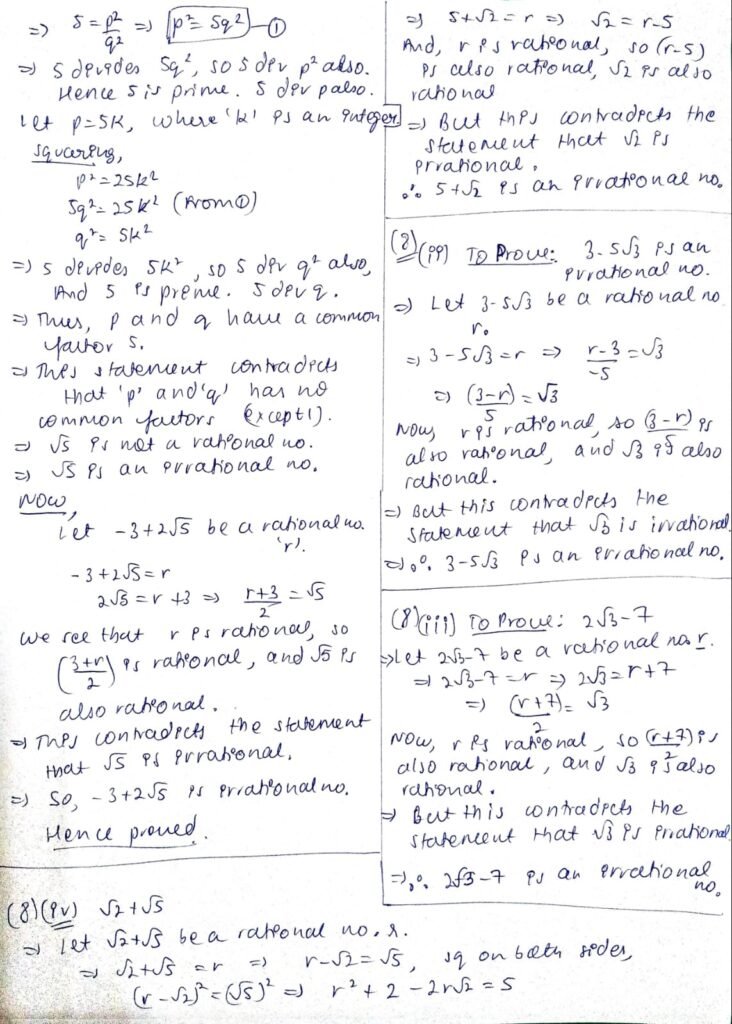 => 5 = p²/q² => p² = 5q² —①
=> 5 devides 5q², so 5 div p² also.
Hence 5 is prime. 5 div p also.
Let p=5k, where 'k' is an integer
squaring,
p² = 25k²
5q² = 25k² (From①)
q² = 5k²
=> 5 devides 5k², so 5 div q² also,
And 5 is prime. 5 div q.
=> Thus, p and q have a common
factor 5.
=> This statement contradicts
that 'p' and 'q' has no
common factors (except 1).
=> √5 is not a rational no.
=> √5 is an irrational no.
Now,
Let -3+2√5 be a rational no.
'r'.
-3+2√5=r
2√5=r+3 => r+3/2 = √5
we see that r is rational, so
(3+r/2) is rational, and √5 is
also rational.
=> This contradicts the statement
that √5 is irrational.
=> So, -3+2√5 is irrational no.
Hence proved.
=> 5+√2 = r => √2 = r-5
And, r is rational, so (r-5)
is also rational, √2 is also
rational
=> But this contradicts the
statement that √2 is
irrational.
∴ 5+√2 is an irrational no.
(8)(ii) To Prove: 3-5√3 is an
irrational no.
=> Let 3-5√3 be a rational no
r.
=> 3-5√3=r => r-3/-5 = √3
=> (3-r)/5 = √3
Now, r is rational, so (3-r)/5 is
also rational, and √3 is also
rational.
=> But this contradicts the
statement that √3 is irrational
=> ∴ 3-5√3 is an irrational no.
(8)(iii) To Prove: 2√3-7
=> Let 2√3-7 be a rational no r.
=> 2√3-7=r => 2√3=r+7
=> (r+7)/2 = √3
Now, r is rational, so (r+7)/2 is
also rational, and √3 is also
rational.
=> But this contradicts the
statement that √3 is irrational
=> ∴ 2√3-7 is an irrational
no.
(8)(iv) √2+√5
=> Let √2+√5 be a rational no. r.
=> √2+√5 = r => r-√2=√5, sq on both sides,
(r-√2)²=(√5)² => r²+2-2r√2=5